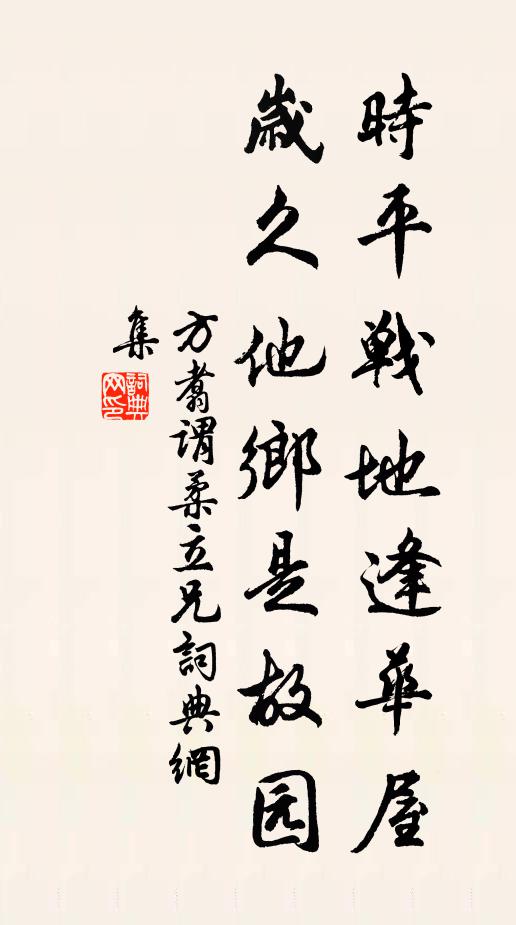 時平戰地逢華屋
歲久他鄉是故园
方翥謂柔立兄詞典網
集
詞典
网印